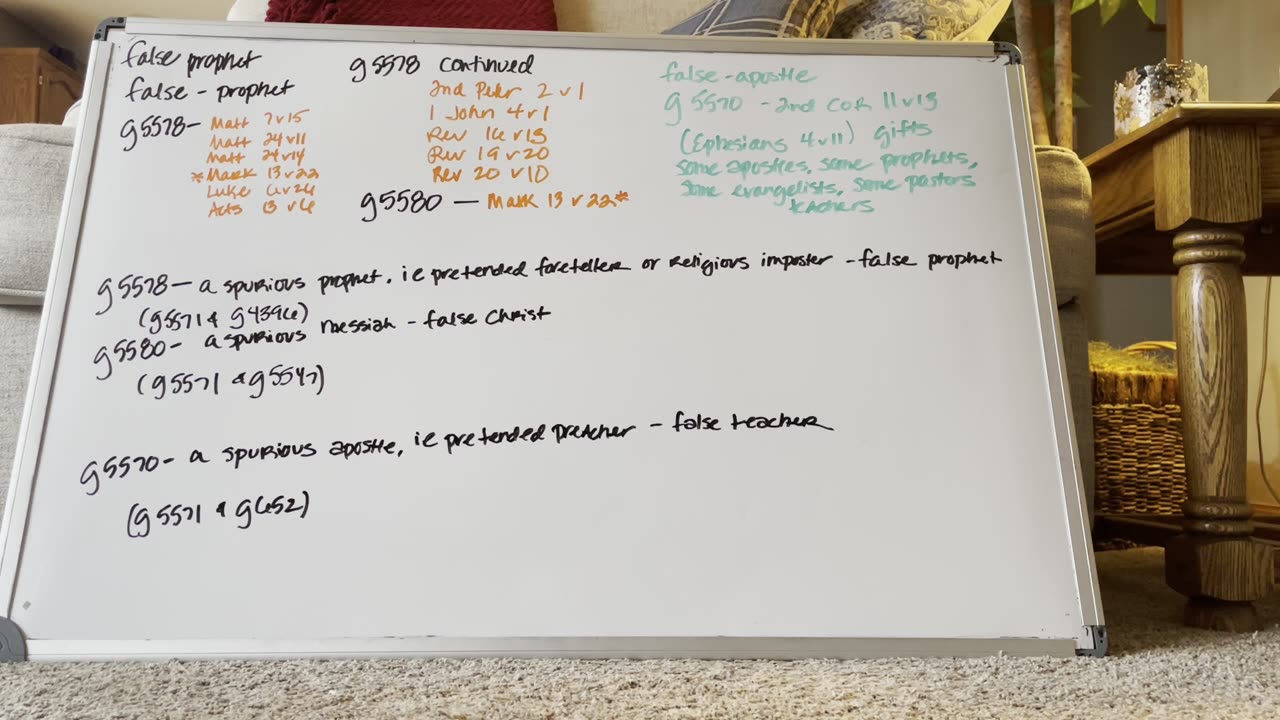 false prophet
false - prophet
g5578 - Matt 7 v 15
Matt 24 v 11
Matt 24 v 14
* Mark 13 v 22
Luke 6 v 26
Acts 13 v 6
g5578 continued
2nd Peter 2 v 1
1 John 4 v 1
Rev 16 v 13
Rev 19 v 20
Rev 20 v 10
g5580 — Mark 13 v 22*
false - apostle
g5570 - 2nd COR 11 v 13
(Ephesians 4 v 11) gifts
some apostles, some prophets,
some evangelists, some pastors
teachers
g5578 — a spurious prophet, ie pretended foreteller or religious imposter - false prophet
(g5571 & g4396)
g5580 - a spurious messiah - false Christ
(g5571 & g5547)
g5570 - a spurious apostle, ie pretended preacher - false teacher
(g5571 & g652)